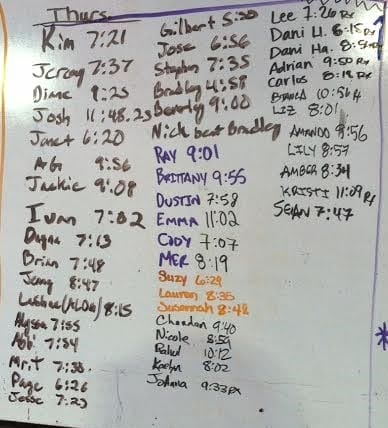 Thurs.
Kim 7:21
Jeremy 7:37
Diane 9:25
Josh 11:48.23
Janet 6:20
AG 9:56
Jackie 9:08
Ivan 7:02
Dayna 7:13
Brian 7:48
Jenny 8:47
8:15
Alyssa 7:55
Abi 7:54
Mr.T 7:38
Page 6:26
Jesse 7:23
Gilbert 5:50
Jose 6:56
Stephen 7:35
Bradley 4:58
Beverly 9:00
Nick beat Bradley
RAY 9:01
BRITTANY 9:55
DUSTIN 7:58
EMMA 11:02
CODY 7:07
MER 8:19
Suzy 6:29
Lauren 8:35
Susannah 8:48
9:40
Nicole 8:59
Rahul 10:12
Kaelyn 8:02
JoAnna 9:33 RX
Lee 7:26 Rx
Dani U. 8:15 Rx
Dani Ha. 8:54
Adrian 9:50 Rx
Carlos 8:19 Rx
BIANCA 10:56
LIZ 8:01
AMANDO 9:56
LILY 8:57
AMBER 8:34
KRISTI 11:09 Rx
SEAN 7:47